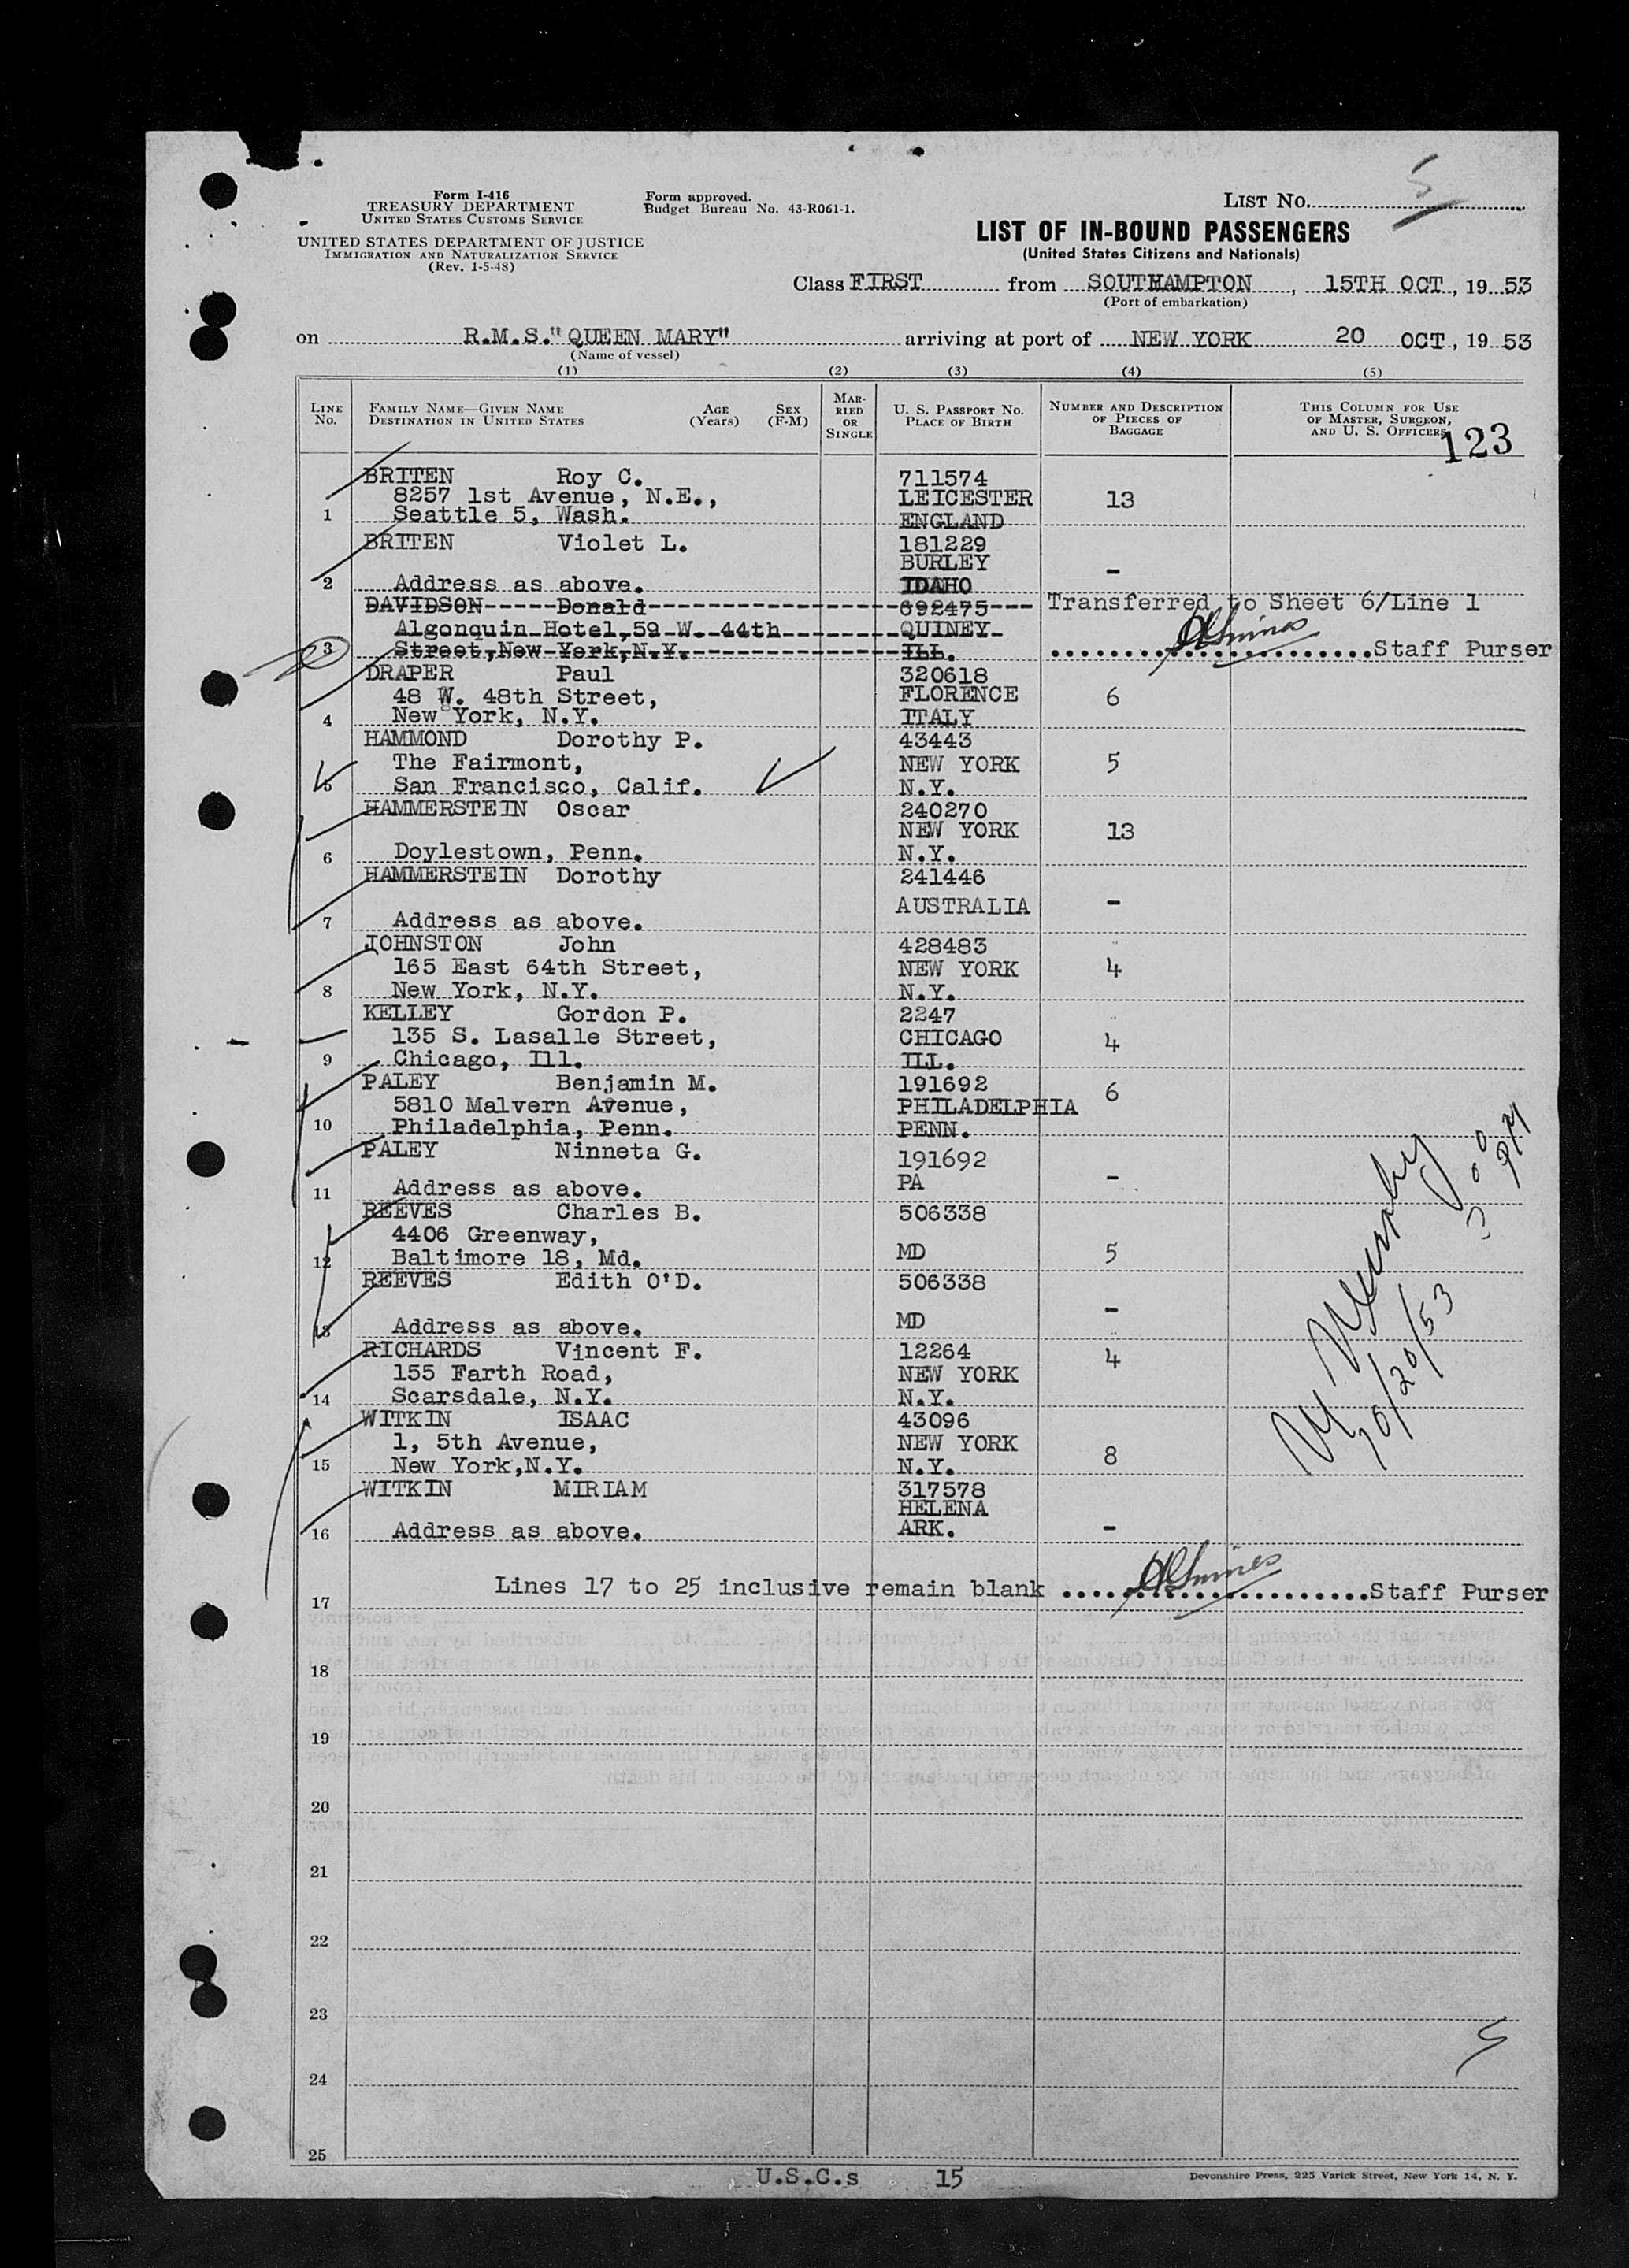 Form I-416
TREASURY DEPARTMENT
UNITED STATES CUSTOMS SERVICE
UNITED STATES DEPARTMENT OF JUSTICE
IMMIGRATION AND NATURALIZATION SERVICE
(Rev. 1-5-48)
Form approved.
Budget Bureau No. 43-R061-1.
LIST No. 5
LIST OF IN-BOUND PASSENGERS
(United States Citizens and Nationals)
Class FIRST from SOUTHAMPTON, 15TH OCT, 1953
(Port of embarkation)
on R.M.S."QUEEN MARY" arriving at port of NEW YORK 20 OCT, 1953
(Name of vessel)
(1) (2) (3) (4) (5)
LINE No. FAMILY NAME—GIVEN NAME DESTINATION IN UNITED STATES AGE (Years) SEX (F-M) MARRIED OR SINGLE U. S. PASSPORT No. PLACE OF BIRTH NUMBER AND DESCRIPTION OF PIECES OF BAGGAGE THIS COLUMN FOR USE OF MASTER, SURGEON, AND U. S. OFFICERS
123
BRITEN Roy C. 711574
8257 1st Avenue, N.E., LEICESTER 13
1 Seattle 5, Wash. ENGLAND
BRITEN Violet L. 181229
BURLEY -
2 Address as above. IDAHO
DAVIDSON Donald 692475 Transferred to Sheet 6/Line 1
Algonquin Hotel,59 W. 44th QUINEY
3 Street,New York,N.Y. ILL. Staff Purser
DRAPER Paul 320618
48 W. 48th Street, FLORENCE 6
4 New York, N.Y. ITALY
HAMMOND Dorothy P. 43443
The Fairmont, NEW YORK 5
5 San Francisco, Calif. N.Y.
HAMMERSTEIN Oscar 240270
NEW YORK 13
6 Doylestown, Penn. N.Y.
HAMMERSTEIN Dorothy 241446
AUSTRALIA -
7 Address as above.
JOHNSTON John 428483
165 East 64th Street, NEW YORK 4
8 New York, N.Y. N.Y.
KELLEY Gordon P. 2247
135 S. Lasalle Street, CHICAGO 4
9 Chicago, Ill. ILL.
PALEY Benjamin M. 191692 6
5810 Malvern Avenue, PHILADELPHIA
10 Philadelphia, Penn. PENN.
PALEY Ninneta G. 191692
PA -
11 Address as above.
REEVES Charles B. 506338
4406 Greenway,
12 Baltimore 18, Md. MD 5
REEVES Edith O'D. 506338
-
13 Address as above. MD
RICHARDS Vincent F. 12264 4
155 Farth Road, NEW YORK
14 Scarsdale, N.Y. N.Y.
WITKIN ISAAC 43096
1, 5th Avenue, NEW YORK 8
15 New York,N.Y. N.Y.
WITKIN MIRIAM 317578
HELENA
16 Address as above. ARK. -
M Murphy
10/20/53
3 00 PM
17 Lines 17 to 25 inclusive remain blank Staff Purser
18
19
20
21
22
23
24
25
5
U.S.C.s 15
Devonshire Press, 225 Varick Street, New York 14, N. Y.